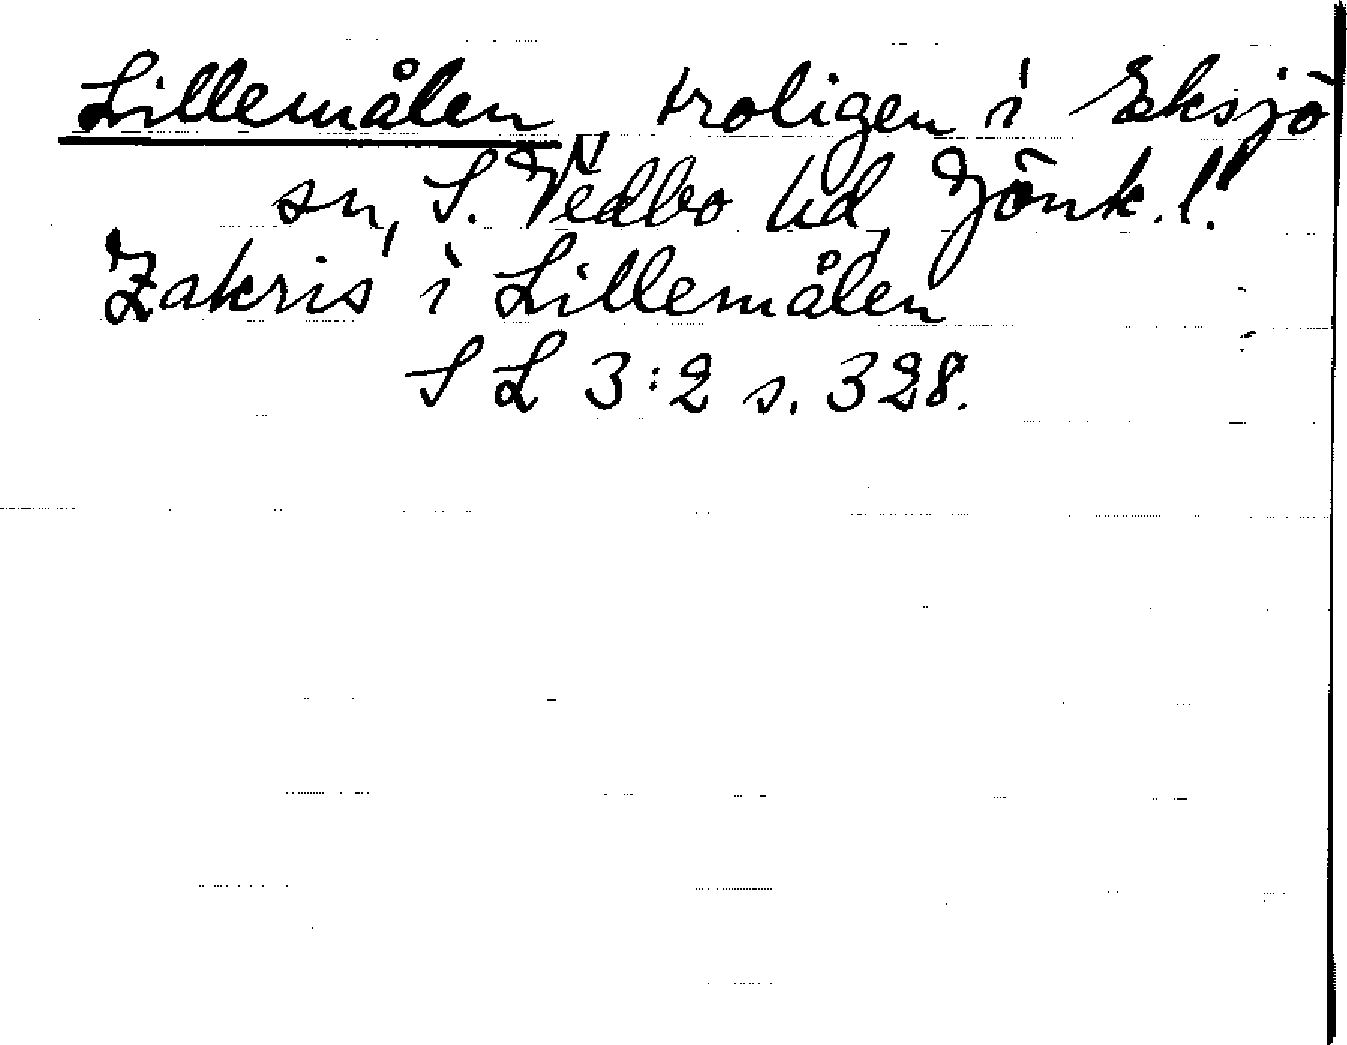 Lillemålen, troligen i Eksjö
sn, S. Vedbo hd, Jönk. l.
Zakris i Lillemålen
S L 3:2 s. 328.